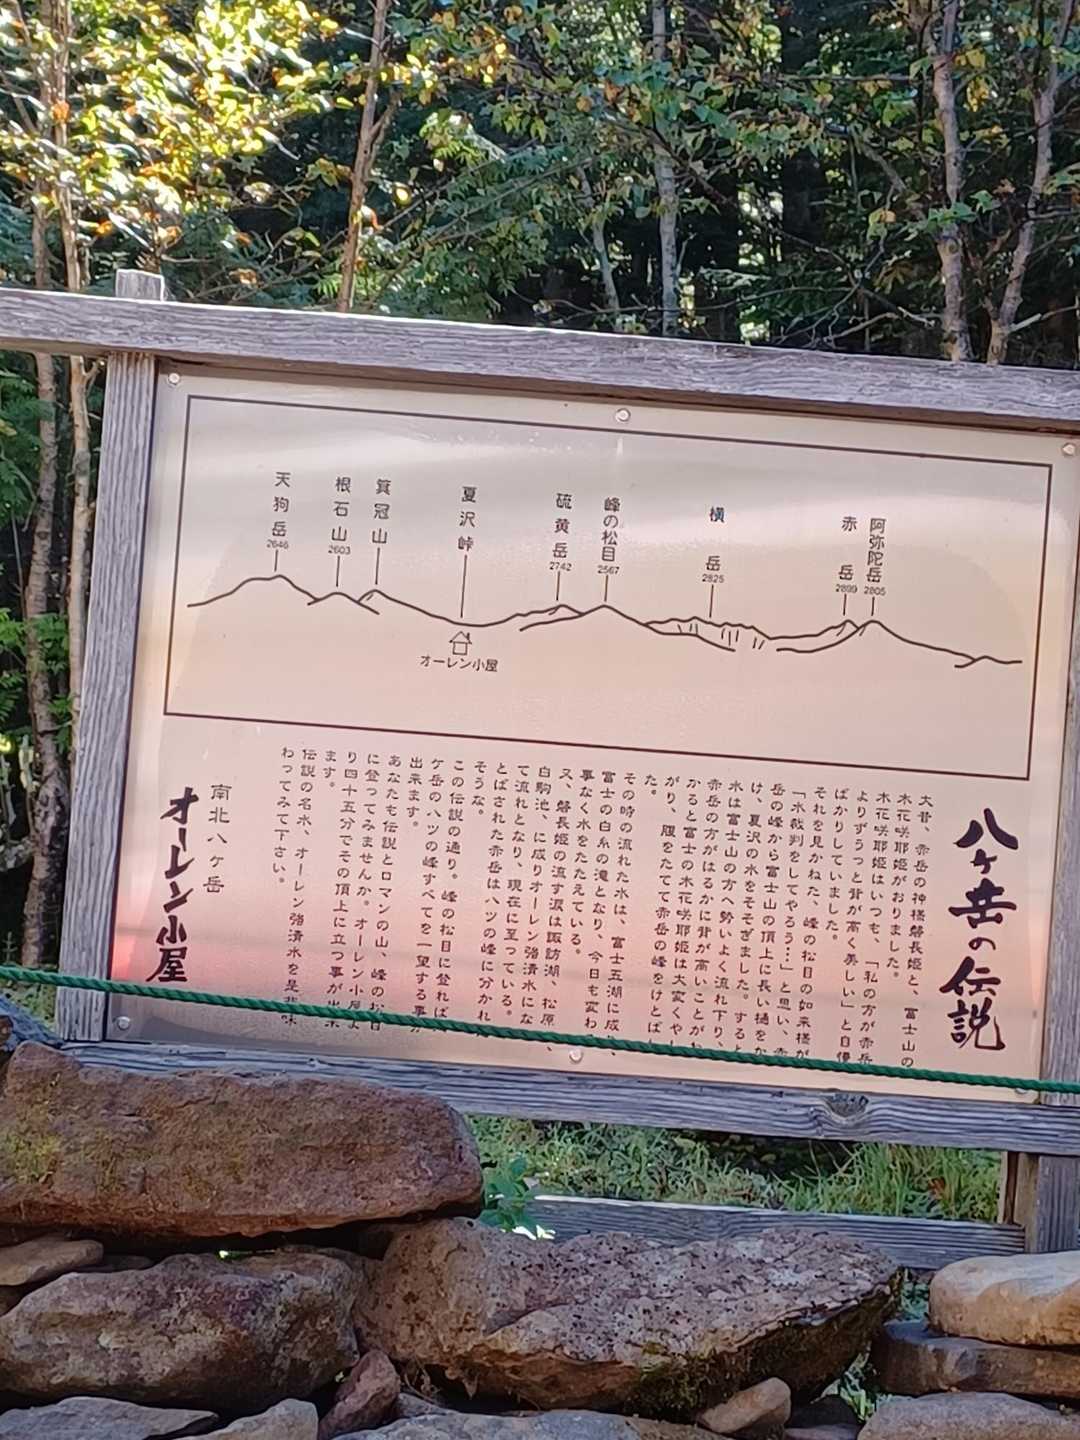 天狗岳
2646
根石山
2603
箕冠山
夏沢峠
オーレン小屋
硫黄岳
2742
峰の松目
2567
横岳
2825
赤岳
2899
阿弥陀岳
2805
八ヶ岳の伝説
大昔、赤岳の神様磐長姫と、富士山の
木花咲耶姫がおりました。
木花咲耶姫はいつも、「私の方が赤岳
よりずうっと背が高く美しい」と自慢
ばかりしていました。
それを見かねた、峰の松目の如来様が
「水裁判をしてやろう…」と思い、赤
岳の峰から富士山の頂上に長い樋をか
け、夏沢の水をそそぎました。すると
水は富士山の方へ勢いよく流れ下り、
赤岳の方がはるかに背が高いことがわ
かると富士の木花咲耶姫は大変くやし
がり、腹をたてて赤岳の峰をけとばし
た。
その時の流れた水は、富士五湖に成り、
富士の白糸の滝となり、今日も変わる
事なく水をたたえている。
又、磐長姫の流す涙は諏訪湖、松原
白駒池、に成りオーレン強清水にな
て流れとなり、現在に至っている。
とばされた赤岳は八ツの峰に分かれ
そうな。
この伝説の通り。峰の松目に登れば
ケ岳の八ツの峰すべてを一望する事が
出来ます。
あなたも伝説とロマンの山、峰の松目
に登ってみませんか。オーレン小屋よ
り四十五分でその頂上に立つ事が出来
ます。
伝説の名水、オーレン強清水を是非味
わってみて下さい。
南北八ヶ岳
オーレン小屋